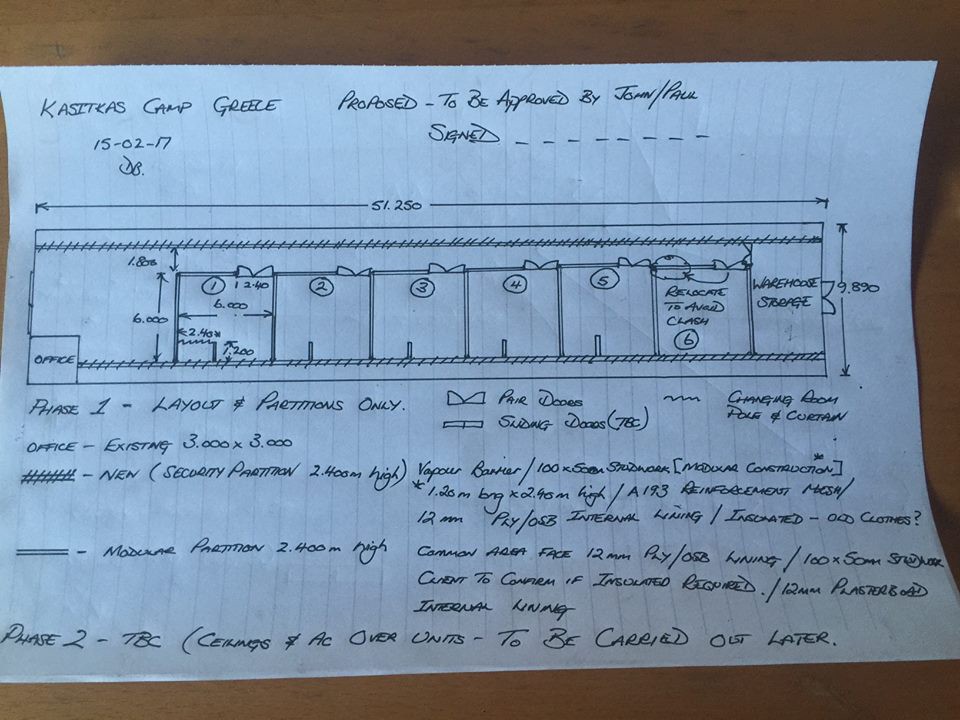 KASITKAS CAMP GREECE
PROPOSED - TO BE APPROVED BY JOHN/PAUL
SIGNED _ _ _ _ _ _ _ _
15-02-17
DB.
51.250
1.800
1
2.40
2
3
4
5
6.000
6.000
RELOCATE
TO AVOID
CLASH
6
WAREHOUSE
STORAGE
9.890
2.40
1.200
OFFICE
PHASE 1 - LAYOUT & PARTITIONS ONLY.
PAIR DOORS
SLIDING DOORS (TBC)
CHANGING ROOM
POLE & CURTAIN
OFFICE - EXISTING 3.000 x 3.000
- NEW (SECURITY PARTITION 2.400m high)
VAPOUR BARRIER / 100x50mm STUDWORK [MODULAR CONSTRUCTION*]
* 1.20m long x 2.40m high / A193 REINFORCEMENT MESH/
12mm PLY/OSB INTERNAL LINING / INSULATED - OLD CLOTHES?
- MODULAR PARTITION 2.400m high
COMMON AREA FACE 12mm PLY/OSB LINING / 100x50mm STUDWORK
CLIENT TO CONFIRM IF INSULATED REQUIRED. / 12mm PLASTERBOAD
INTERNAL LINING
PHASE 2 - TBC (CEILINGS & AC OVER UNITS - TO BE CARRIED OUT LATER.